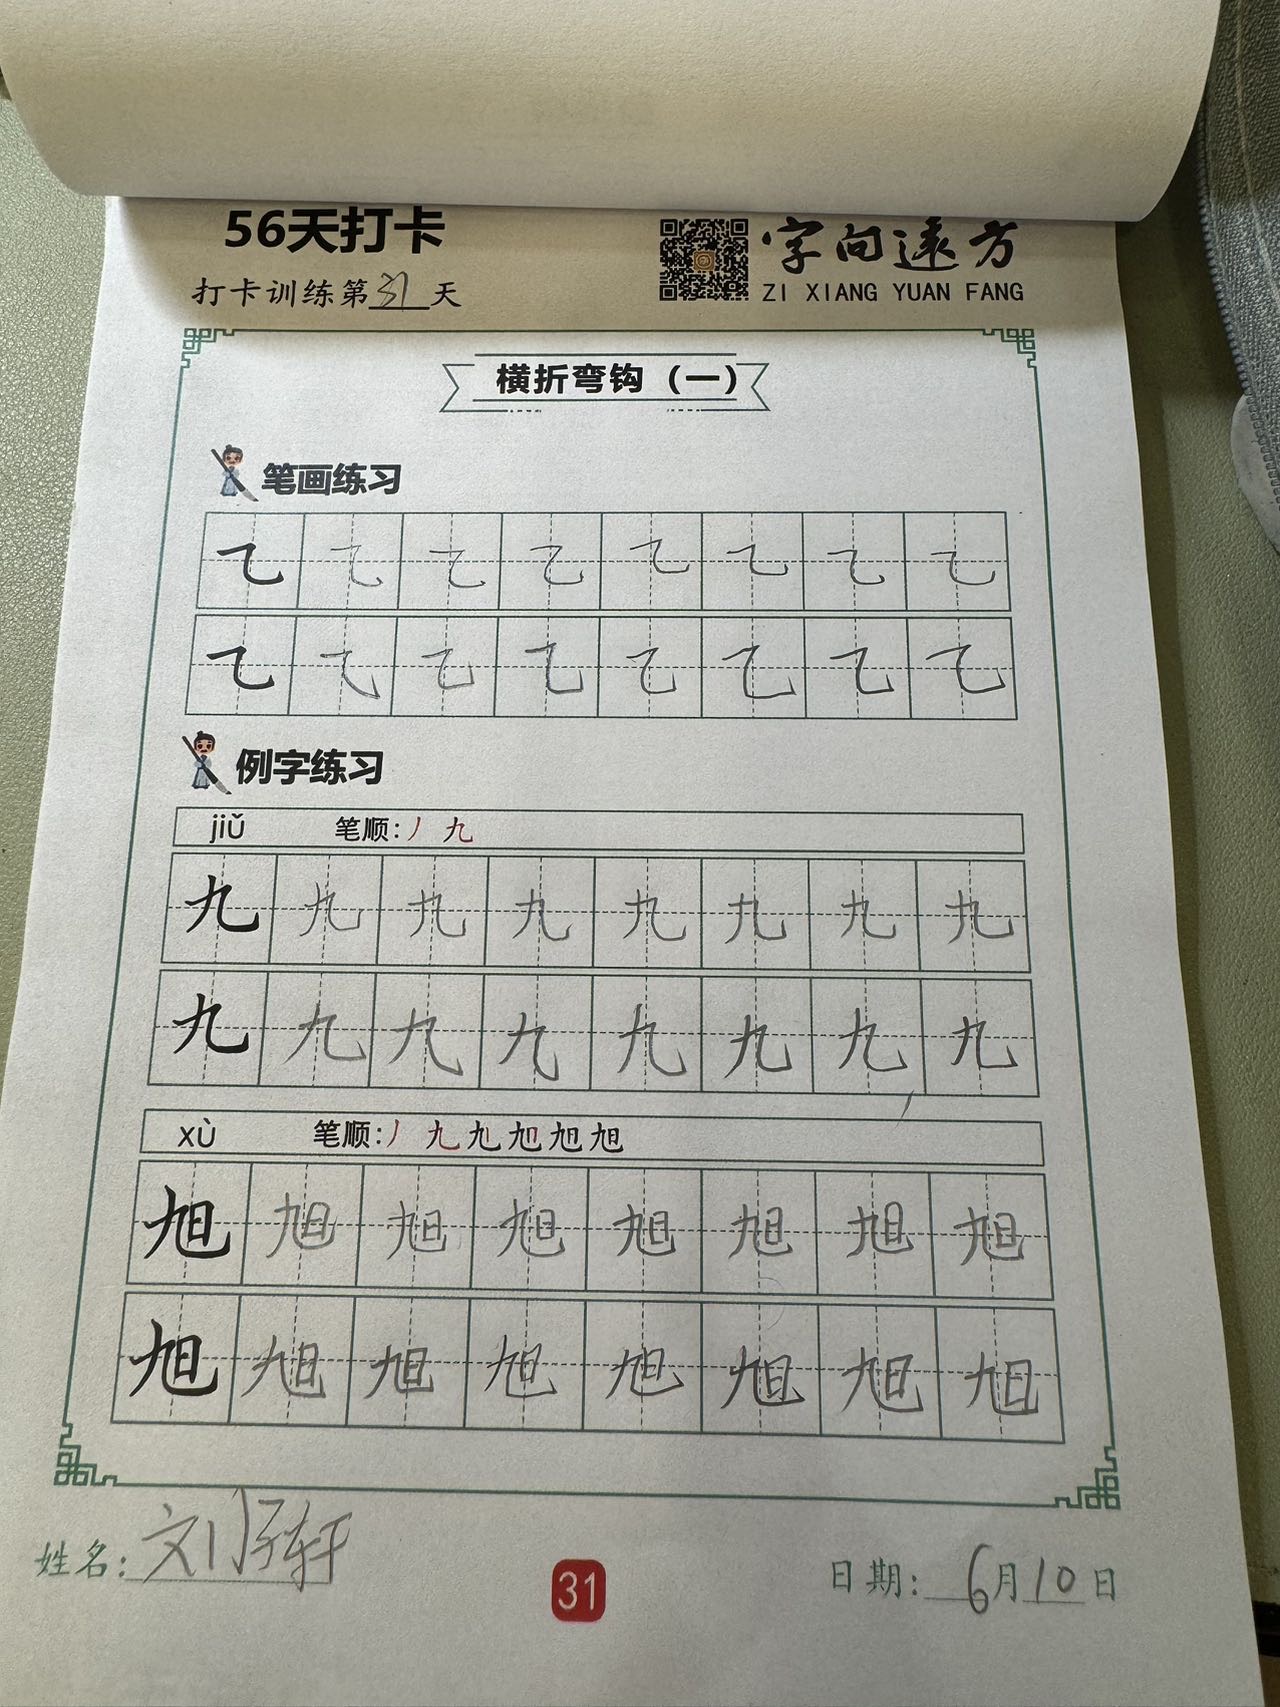 56天打卡
打卡训练第31天
字向远方
ZI XIANG YUAN FANG
横折弯钩（一）
笔画练习
㇈ ㇈ ㇈ ㇈ ㇈ ㇈ ㇈ ㇈
㇈ ㇈ ㇈ ㇈ ㇈ ㇈ ㇈ ㇈
例字练习
jiǔ 笔顺:丿 九
九 九 九 九 九 九 九 九
九 九 九 九 九 九 九 九
xù 笔顺:丿 九 旭 旭 旭 旭
旭 旭 旭 旭 旭 旭 旭 旭
旭 旭 旭 旭 旭 旭 旭 旭
姓名: 刘子轩
31
日期: 6月10日